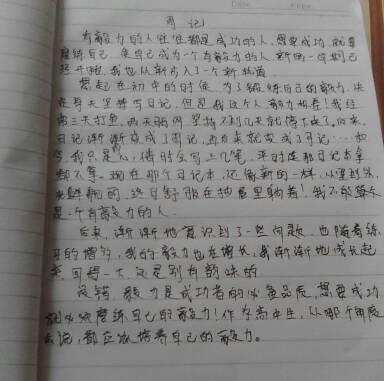 周记
有毅力的人往往都是成功的人,想要成功,就要
磨练自己,使自己成为一个有毅力的人。新的一学期已
经开始,我也从新步入了一个新
想起在初中的时候,为了锻炼自己的毅力,决
在每天坚持写日记,但是我这个人毅力
三天打鱼,两天晒网坚持不到几天就停下来了,后来,
日记渐渐变成了周记,再后来就变成了月记……
我只是 偶尔会写上几笔,平时连那日记本拿
都不拿。现在那个日记本,还崭新的一样,从里到外,
光鲜靓的,终日舒服在抽屉里躺着!我不能算
是一个有毅力的人。
后来,渐渐地意识到了一些问题,也随着练
习的增多,我的毅力也在增长,我渐渐地成长起
来,可得一天定是别有韵味的
没错,毅力是成功者的必备品质,想要成功
就必须磨练自己的毅力!作为高中生,从哪个角度
来说,都应该培养自己的毅力。